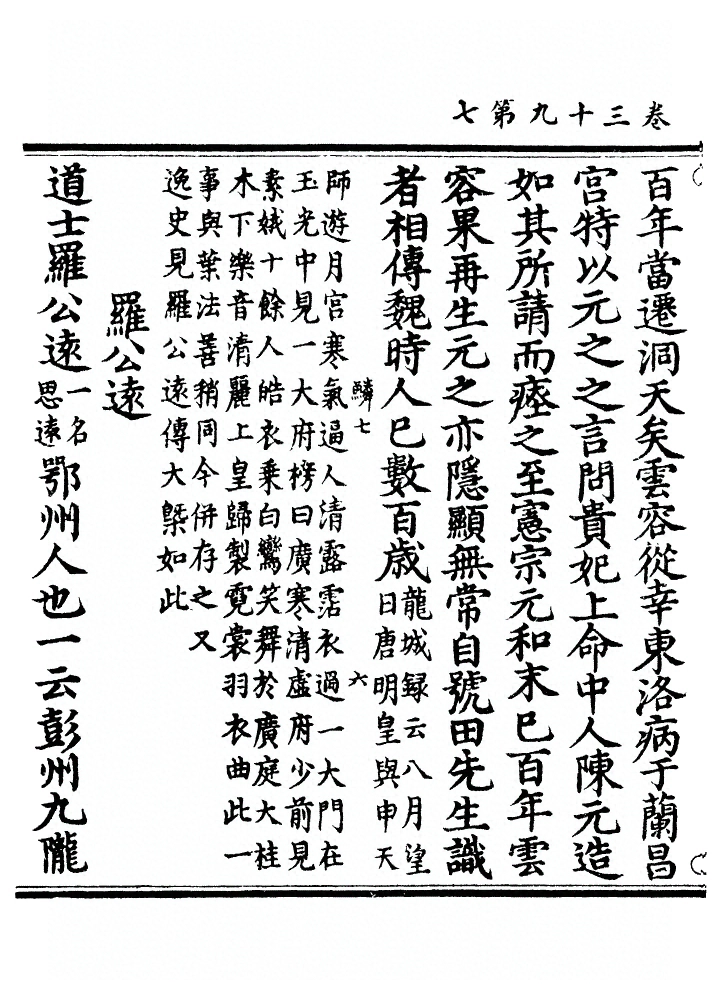 卷三十九第七
百年當遷洞天矣雲容從幸東洛病于蘭昌
宮特以元之之言問貴妃上命中人陳元造
如其所請而瘞之至憲宗元和末已百年雲
容果再生元之亦隱顯無常自號田先生識
者相傳魏時人已數百歲龍城録云八月望
日唐明皇與申天
鱗七
六
師遊月宮寒氣逼人清露霑衣過一大門在
玉光中見一大府榜曰廣寒清虛府少前見
素娥十餘人皓衣乗白鸞笑舞於廣庭大桂
木下樂音清麗上皇歸製霓裳羽衣曲此一
事與葉法善稍同今併存之又
逸史見羅公遠傳大槩如此
羅公遠
道士羅公遠一名
思遠鄂州人也一云彭州九隴